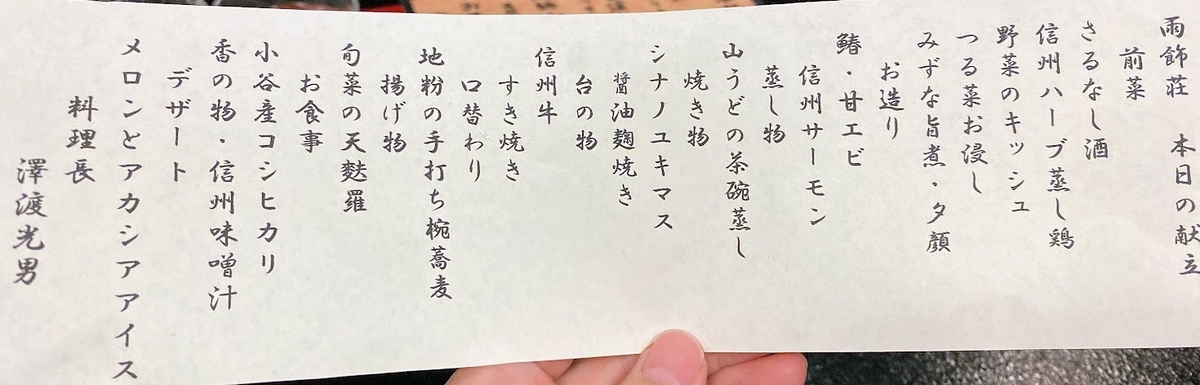 雨飾荘　本日の献立
前菜
さるなし酒
信州ハーブ蒸し鶏
野菜のキッシュ
つる菜お浸し
みずな旨煮・夕顔
お造り
鰆・甘エビ
信州サーモン
蒸し物
山うどの茶碗蒸し
焼き物
シナノユキマス
醤油麹焼き
台の物
信州牛
すき焼き
口替わり
地粉の手打ち椀蕎麦
揚げ物
旬菜の天麩羅
お食事
小谷産コシヒカリ
香の物・信州味噌汁
デザート
メロンとアカシアアイス
料理長
澤渡光男